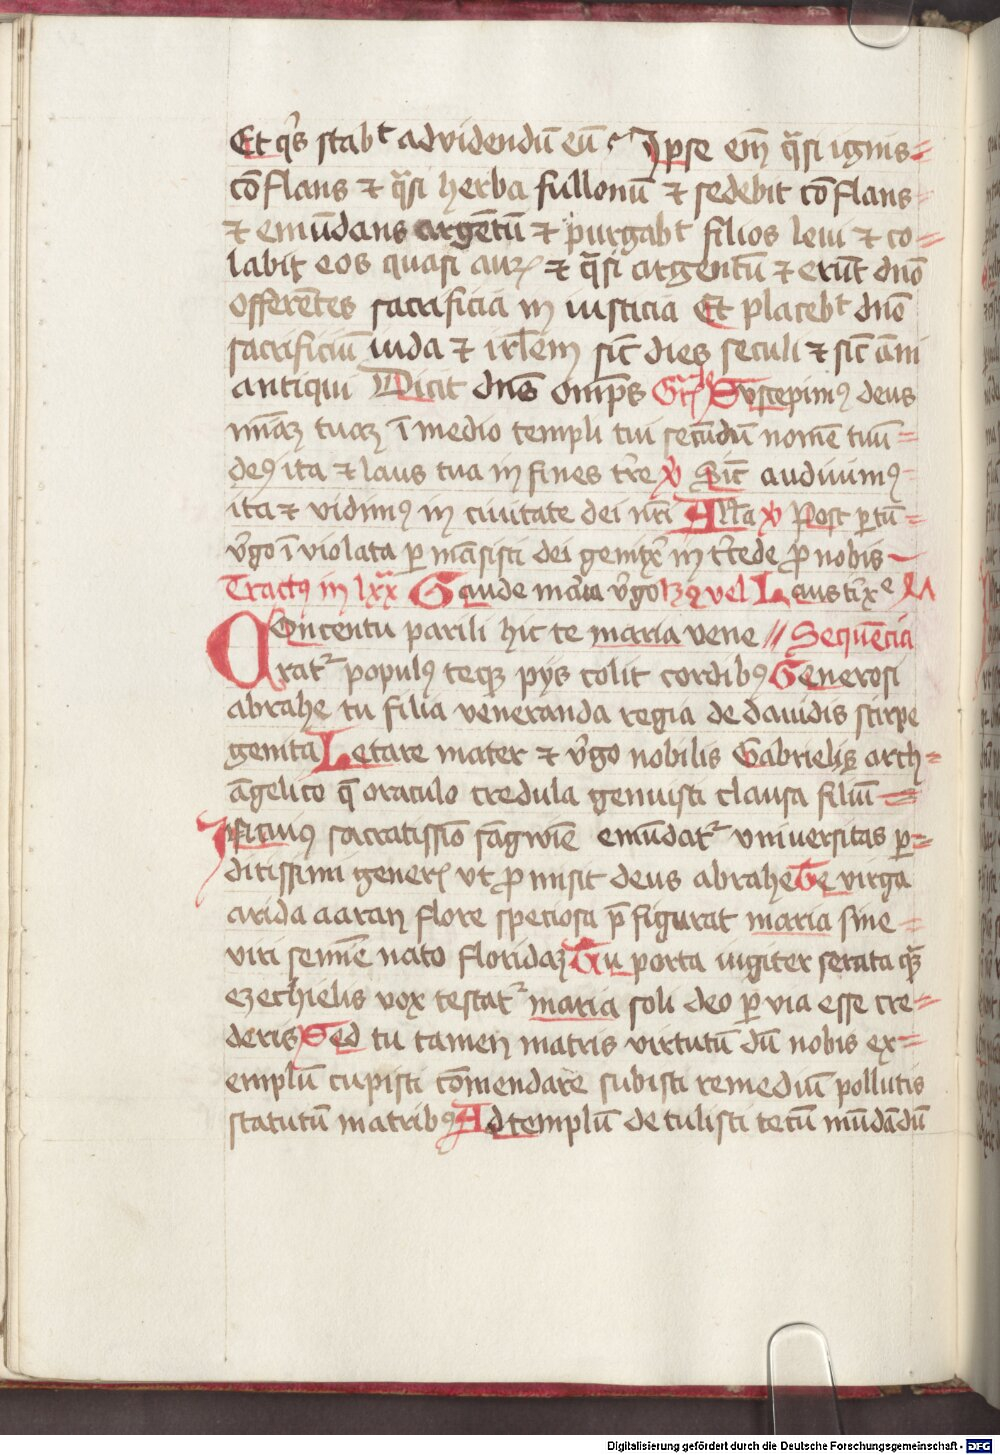 Et q̓s stabt ad videndū eū Ipse em̄ q̄si ignis
cōflans ⁊ q̄si herba fullonū ⁊ sedebit cōflans
⁊ emūdans argētū ⁊ purgabt filios leui ⁊ co
labit eos quasi auꝝ ⁊ q̄si argentū ⁊ erūt dno
offerētes sacrificia in iusticia Et placebt dno
sacrificiū iuda ⁊ irl̄em sic̄ dies seculi ⁊ sic̄ ām
antiqui Dicit dn̄s om̄ps Suscepimꝰ deus
mīaꝫ tuaꝫ ī medio templi tui secūdū nomē tuū
deꝰ ita ⁊ laus tua in fines tr̄e ꝟ Sic̄ audiuimꝰ
ita ⁊ vidimꝰ in ciuitate dei nr̄i All̄a ꝟ Post ꝑtū
v̓go īviolata ꝑmāsisti dei genitx̓ int̓cede ꝓ nobis
Tractꝰ in lxx Gaude ma̓ia v̓go vel Laus
Concentu parili hic te maria vene // Sequēcia
ratᷣ populꝰ teqꝫ pijs colit cordibꝰ Generosi
abrahe tu filia veneranda regia de dauidis stirpe
genita Letare mater ⁊ v̓go nobilis Gabrielis arch
āgelico q̄ oraculo credula genuisti clausa filiū
In cuiꝰ sacratissīo sāgwīe emūdatᷣ vniuersitas ꝑ
ditissimi generꝭ vt ꝓmisit deus abrahe Te virga
arida aaron flore speciosa p̄figurat maria sine
viri semīe nato floridaꝫ Tu porta iugiter serata qꝫ̄
ezechielis vox testatᷣ maria soli deo ꝑuia esse cre
deris Sed tu tamen matris virtutū dū nobis ex
emplū cupisti cōmendare subisti remediū pollutis
statutū matribꝰ Ad templū detulisti tecū mūdādū
Digitalisierung gefördert durch die Deutsche Forschungsgemeinschaft - DFG